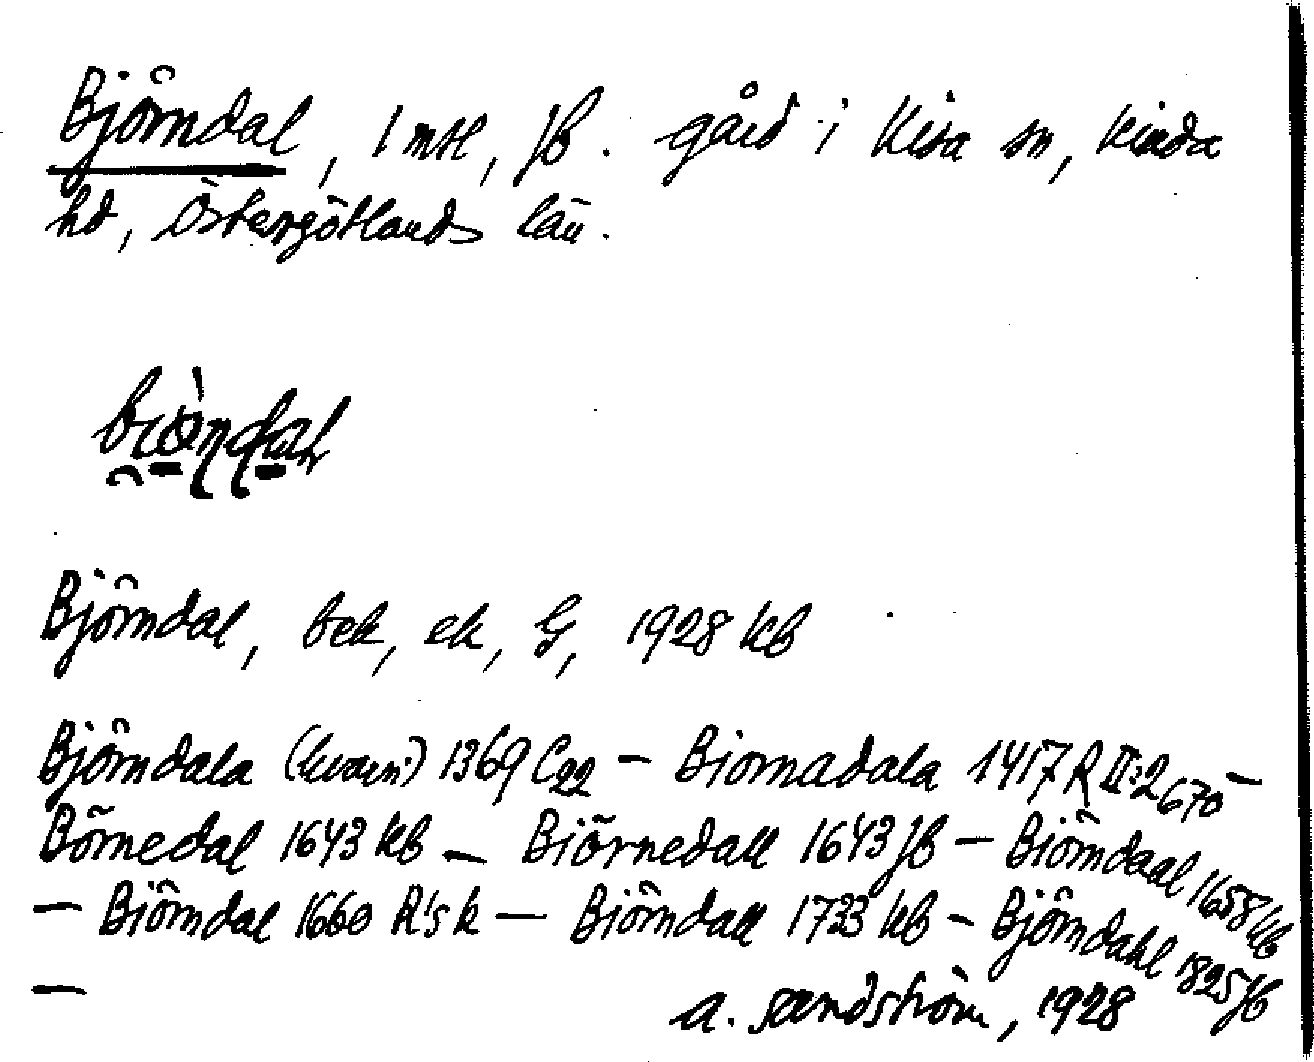 Björndal, 1 mtl, Jb. gård i Kisa sn, Kinda
hd, Östergötlands län.
Björndal, bek, ek, G, 1928 kb
Björndala (kvarn) 1369 C22 — Biornadala 1417 R II:2 670 —
Börnedal 1643 kb — Biörnedall 1643 Jb — Biörndaal 1658 kb
— Biörndal 1660 R's k — Biörndall 1733 kb — Björndahl 1825 Jb
— A. Sandström, 1928